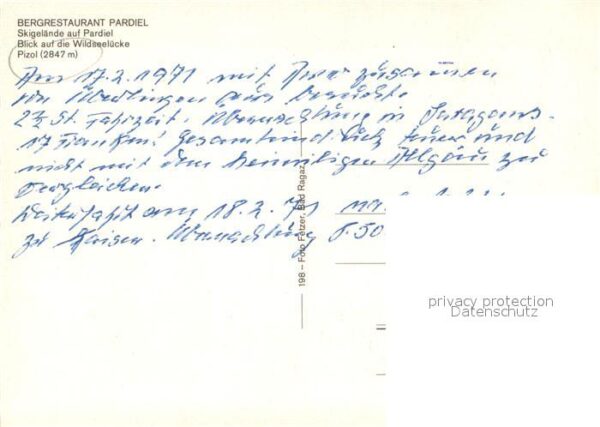 BERGRESTAURANT PARDIEL
Skigelände auf Pardiel
Blick auf die Wildseelücke
Pizol (2847 m)
Am 17.2.1971 mit zusammen
von Überlingen aus besucht.
2½ St. Fahrzeit. Übernachtung in
17 Franken! Gesamteindruck teuer und
nicht mit dem Allgäu zu
vergleichen.
Weiterfahrt am 18.2.71
zu Übernachtung
198 – Foto Fetzer, Bad Ragaz
privacy protection
Datenschutz